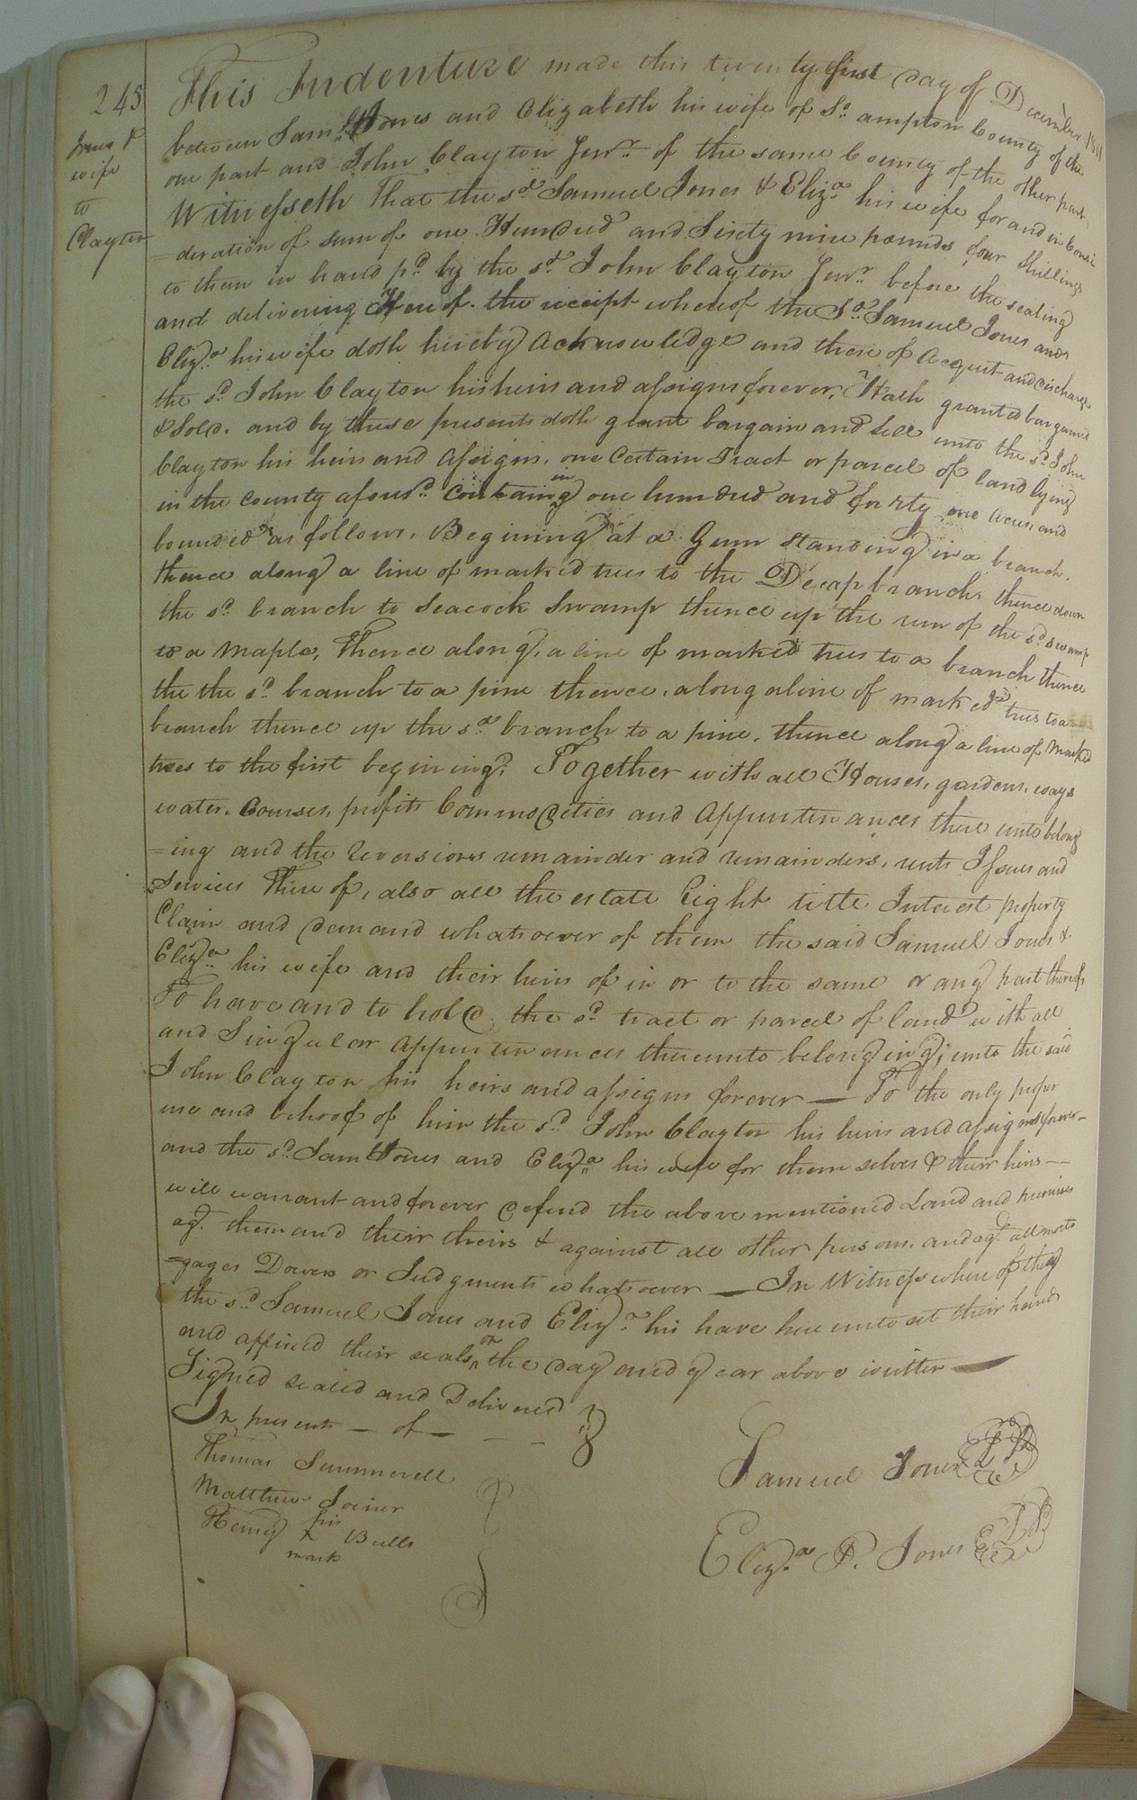 245
Jones &
wife
to
Clayton
This Indenture made this twenty first day of December 1811
between Saml Jones and Elizabeth his wife of So ampton County of the
one part and John Clayton Junr of the same County of the other part
Witnesseth That the sd Samuel Jones & Eliza his wife for and in Consi
=deration of sum of one Hundred and Sixty nine pounds four shillings
to them in hand pd by the sd John Clayton Junr before the sealing
and delivering Hereof. the receipt whereof the Sd Samuel Jones and
Eliza his wife doth hereby Acknowledge and thereof Acquit and discharge
the sd John Clayton his heirs and assigns forever, Hath granted bargained
& Sold. and by these presents doth grant bargain and sell unto the sd John
Clayton his heirs and Assigns, one Certain Tract or parcel of land lying
in the County aforesd containing one hundred and forty one Acres and
bounded as follows. Begining at a Gum standing in a branch.
thence along a line of marked trees to the branch thence down
the sd branch to Seacock Swamp thence up the run of the sd swamp
to a Maple, Thence along, a line of marked trees to a branch thence
the the sd branch to a pine thence, along a line of marked trees to a
branch thence up the sd branch to a pine, thence along a line of marked
trees to the first begining. Together with all Houses, gardens, ways
water. Courses, profits Commodeties and Appurtenances there unto belong
=ing and the Reversions remainder and remainders, rents Issues and
Services There of, also all the estate Right title Interest property
Claim and demand whatsoever of them the said Samuel Jones &
Eliza his wife and their heirs of in or to the same or any part thereof
To have and to hold the sd tract or parcel of land with all
and Singular Appurtenances thereunto belonging; unto the said
John Clayton his heirs and assigns forever — To the only proper
use and behoof of him the sd John Clayton his heirs and assigns forever-
and the sd Saml Jones and Eliza his wife for themselves & their heirs —
will warrant and forever defend the above mentioned Land and premises
agt them and their theirs & against all other persons. and agt all mort
=gages Dowers or Judgments whatsoever — In Witness where of they
the sd Samuel Jones and Eliza his have here unto set their hands
and affixed their seals on the day and year above written —
Signed sealed and Delivered
In presents — of —
Thomas Summerell
Matthew Joiner
Henry his X mark Bulls
Samuel Jones LS
Eliza P. Jones LS